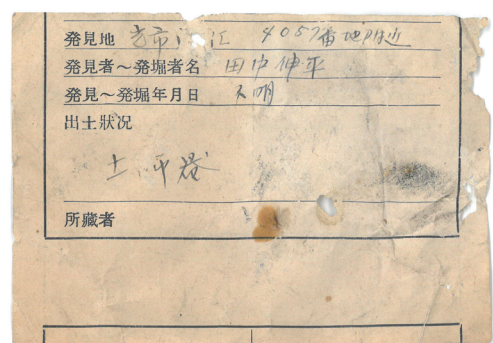 発見地 市 江 4057番地附近
発見者～発堀者名 田中伸平
発見～発堀年月日 不明
出土狀况
土師器
所藏者